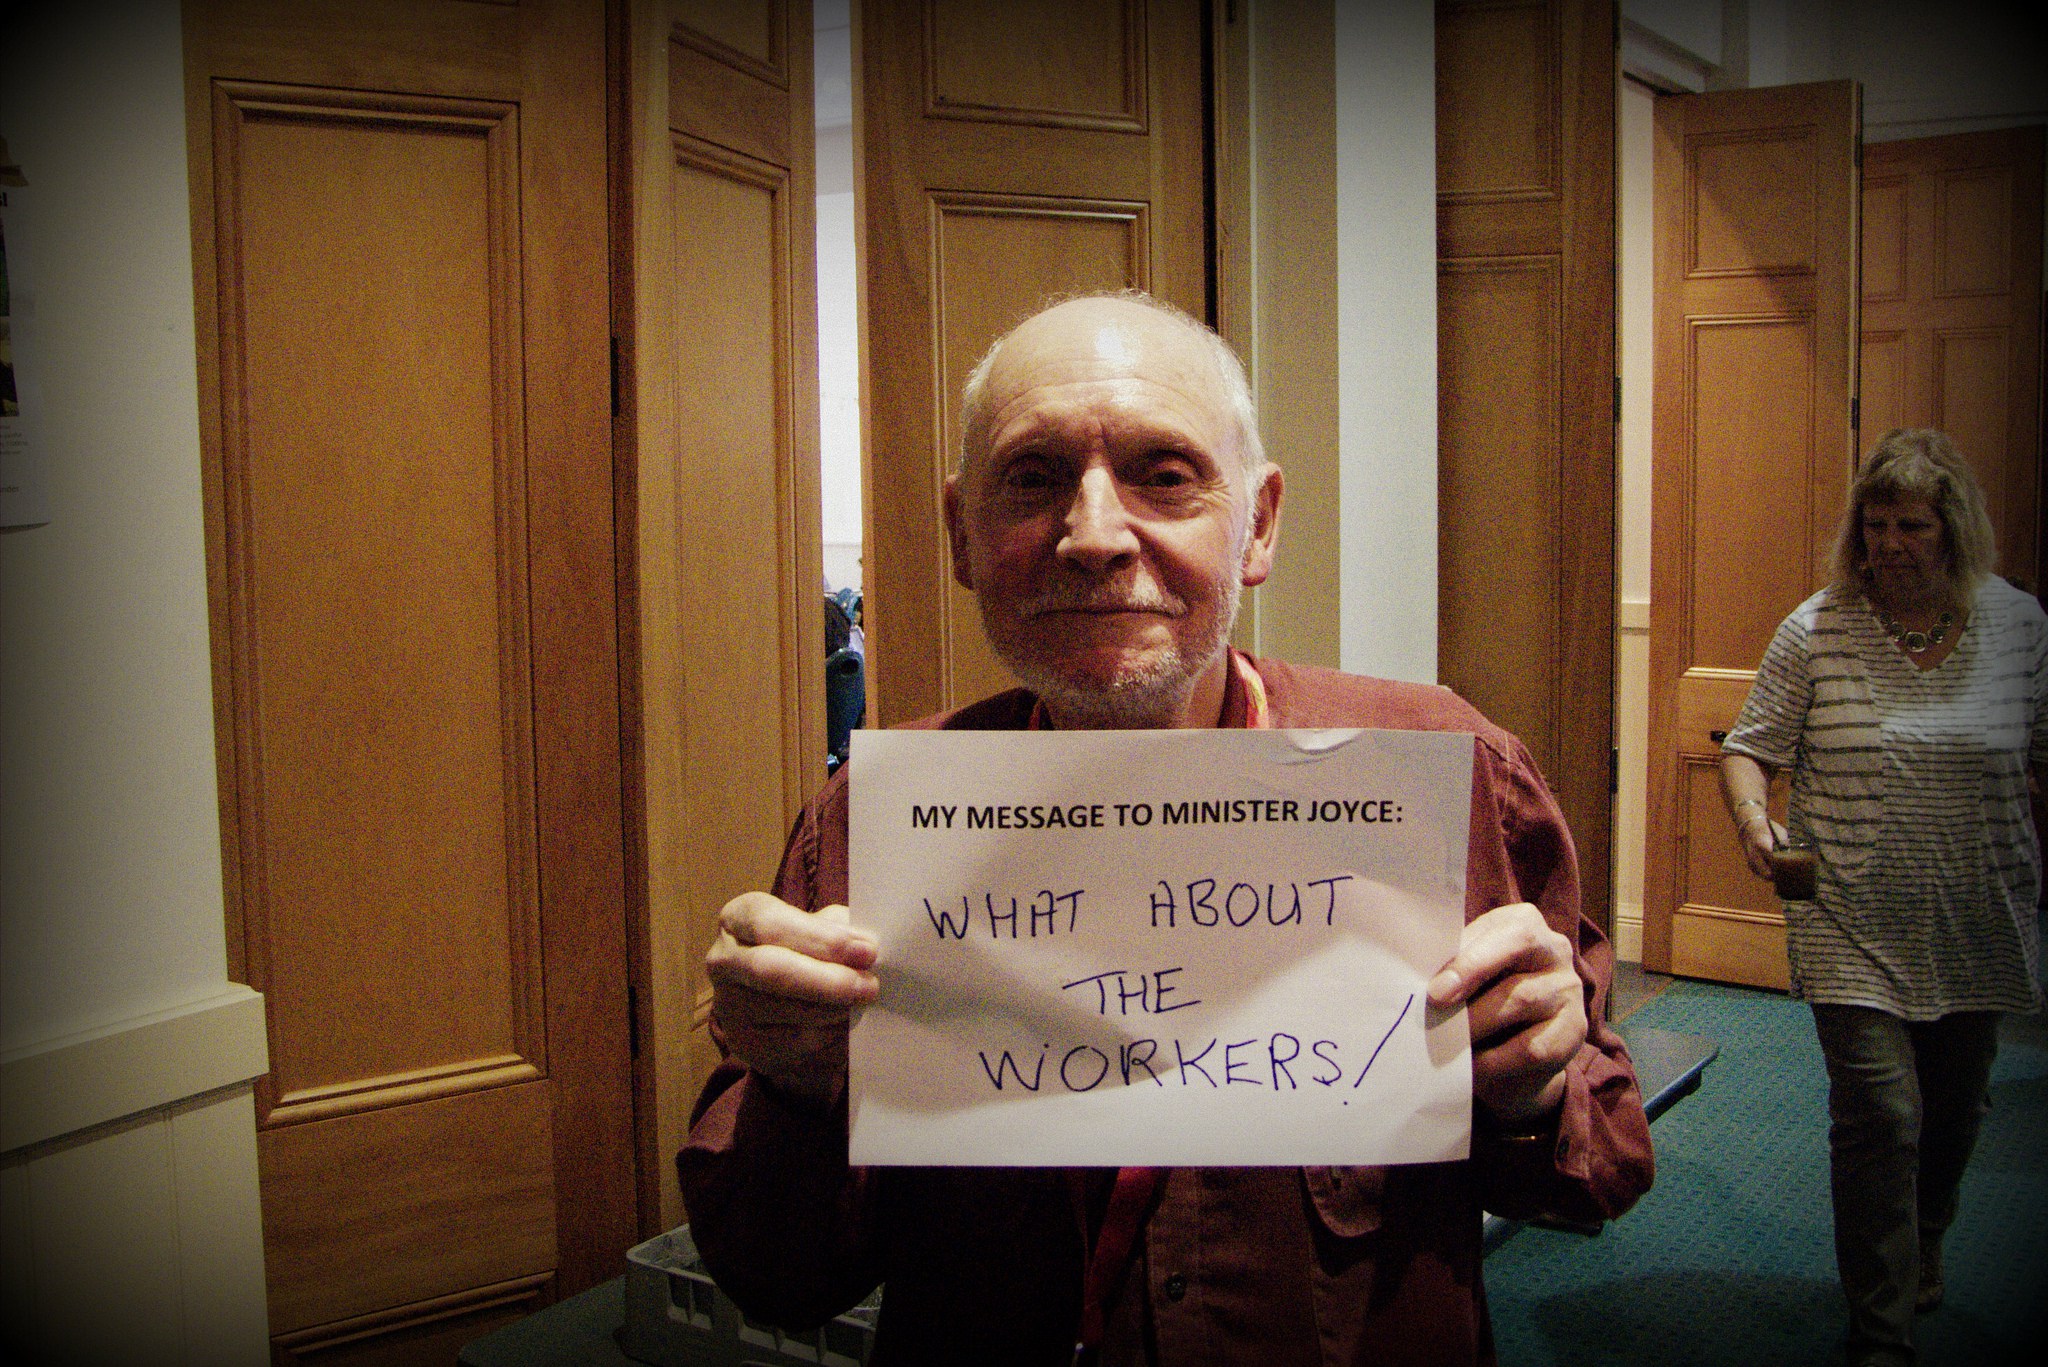 MY MESSAGE TO MINISTER JOYCE:
WHAT ABOUT
THE
WORKERS!